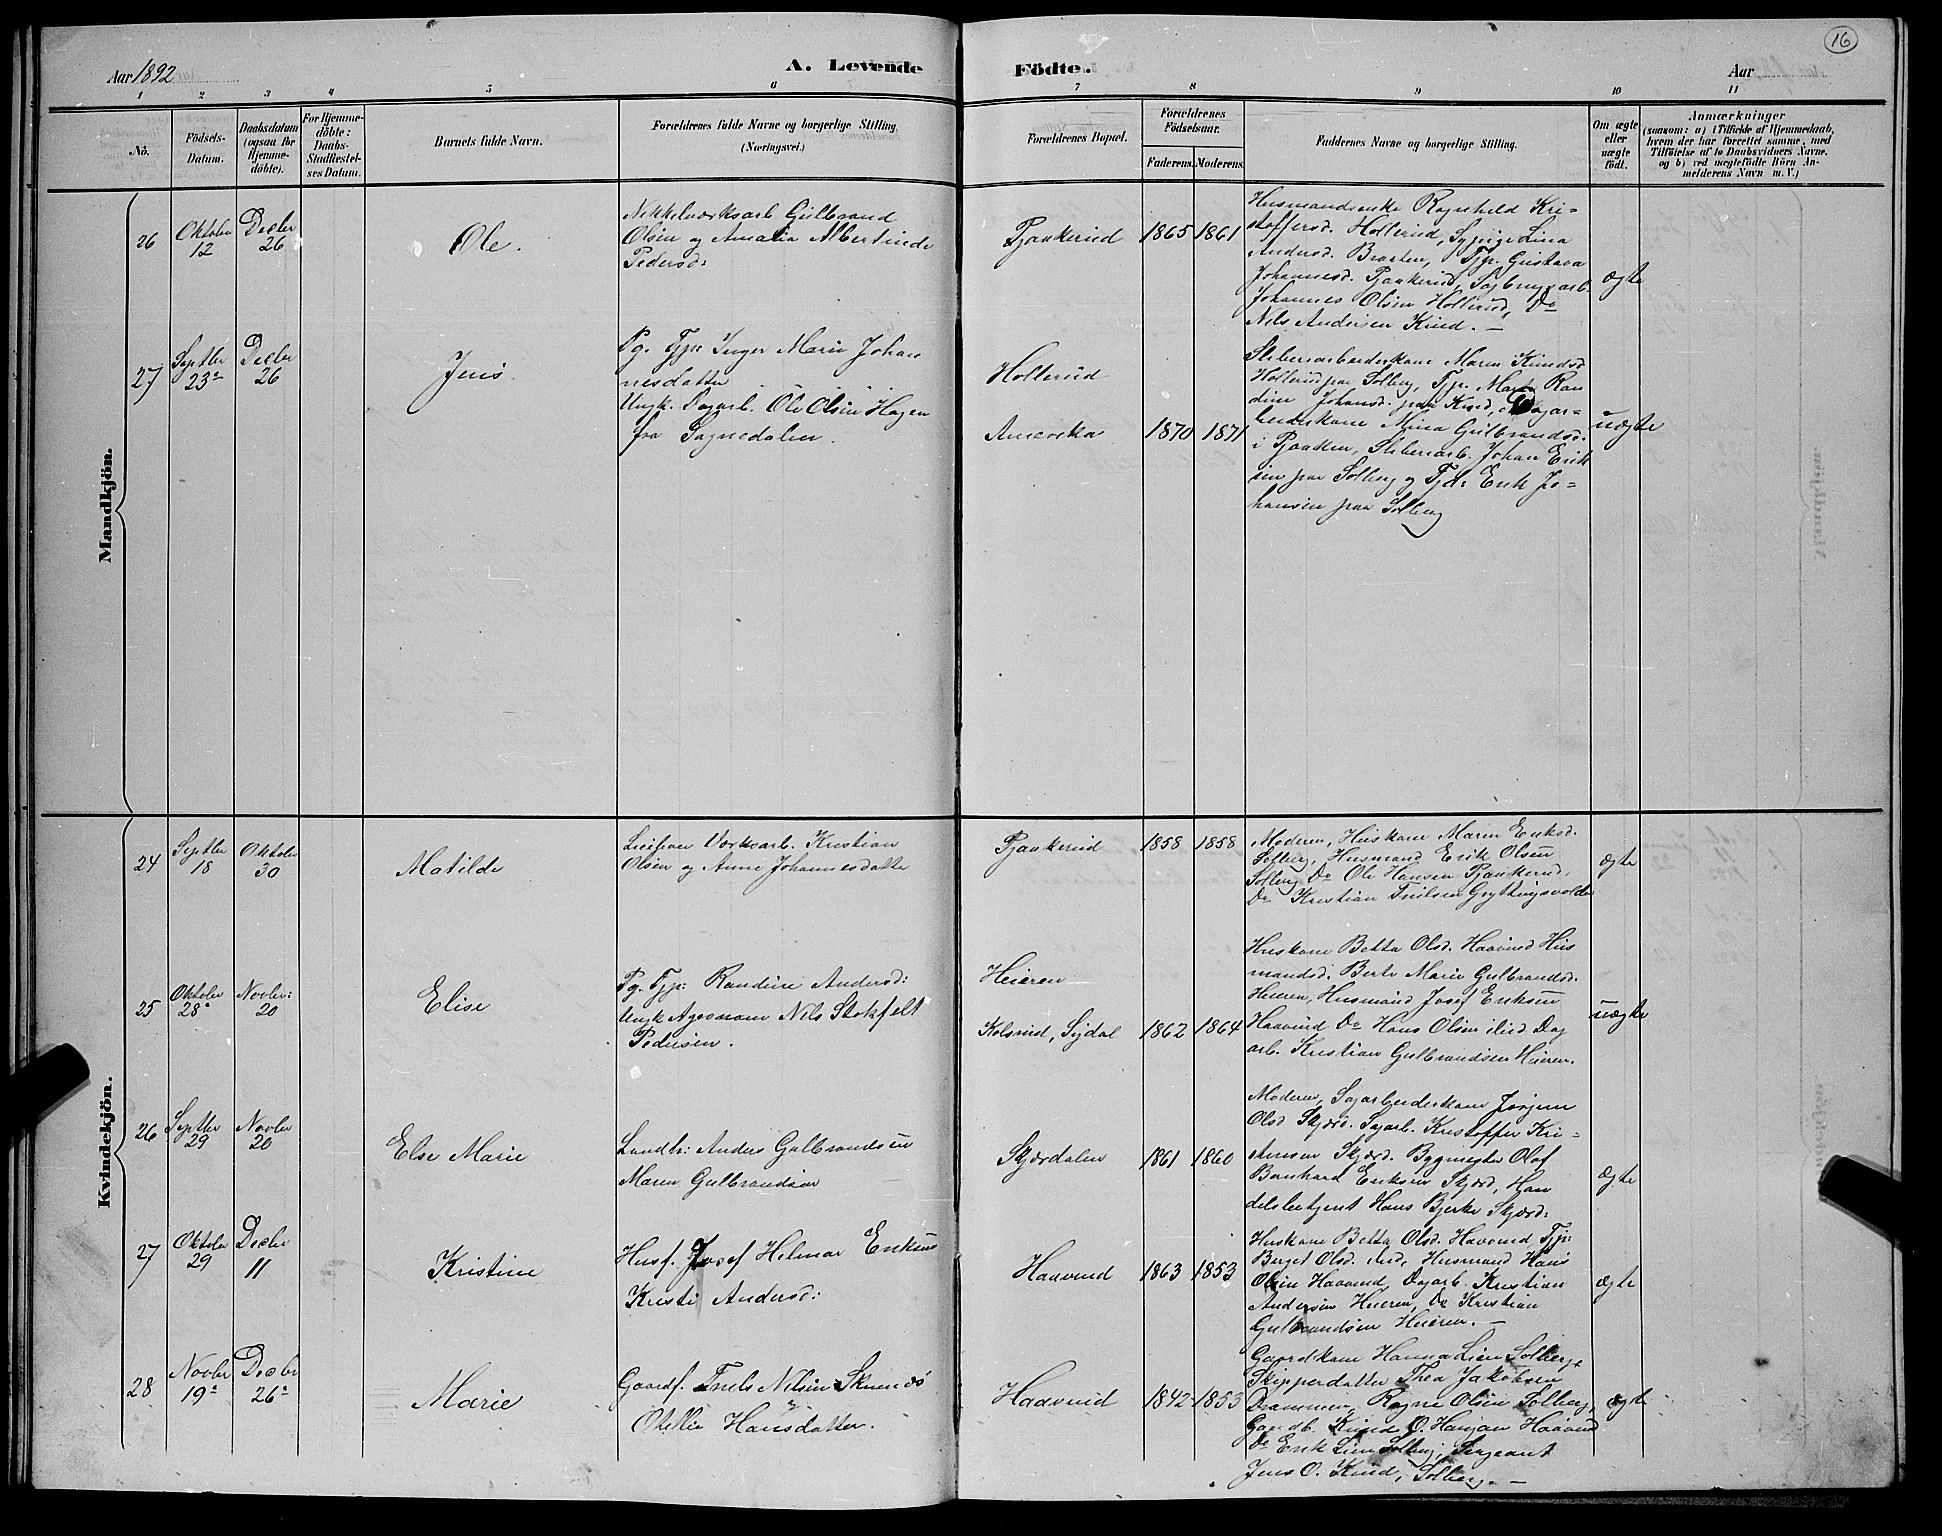 16
Aar 1892
A. Levende
Födte.
Aar
1 2 3 4 5 6 7 8 9 10 11
No.
Födsels-
Datum.
Daabsdatum
(ogsaa for
Hjemme-
döbte).
For Hjemme-
döbte:
Daabs-
Stadfæstel-
ses Datum.
Barnets fulde Navn.
Forældrenes fulde Navne og borgerlige Stilling.
(Næringsvei.)
Forældrenes Bopæl.
Forældrenes
Födselsaar.
Faderens. Moderens.
Faddernes Navne og borgerlige Stilling.
Om ægte
eller
uægte
födt.
Anmærkninger
(saasom: a) i Tilfælde af Hjemmedaab,
hvem der har forrettet samme, med
Tilföielse af to Daabsvidners Navne.
og b) ved uægtefödte Börn An-
melderens Navn m. V.)
Mandkjön.
26
Oktober
12
Decber
26
Ole.
Nikkelværksarb. Gulbrand
Olsen og Amalia Albertinde
Pedersd:
Pjaakerud
1865 1861
Husmandsenke Ragnhild Kri-
stoffersd. Hollerud, Sypige Lina
Andersd. Braaten, Tjp. Gustava
Johannesd. Pjaakerud, Sagbrugsarb.
Johannes Olsen Hollerud, Do
Nils Andersen Kind. —
ægte
27
Septbr
23
Decber
26
Jens.
Pg. Tjp. Inger Marie Johan
nesdatter
Ungk. Dagarb. Ole Olsen Hagen
fra Sognedalen.
Hollerud
Amerika
1870 1871
Sliberiarbeiderkone Maren Knudsd.
Hollerud paa Solberg, Tjp. Marta Ran
dine Johansd. paa Kind, Dagar-
beiderkone Mina Gulbrandsd.
i Pjaaken, Sliberiarb. Johan Erik
sen paa Solberg og Tjd: Erik Jo-
hansen paa Solberg
uægte
Kvindekjön.
24
Septbr
18
Oktober
30
Matilde
Værksarb. Kristian
Olsen og Anne Johannesdatter
Pjaakerud
1858 1858
Moderen, Huskone Maren Eriksd.
Solberg, Husmand Erik Olsen
Solberg Do Ole Hansen Pjaakerud,
Do Kristian
ægte
25
Oktober
28
Novbr:
20
Elise
Pg. Tjp: Randine Andersd:
Ungk. Agronom Nils Stokfelt
Pedersen.
Heieren
Kolsrud, Sigdal
1862 1864
Huskone Betta Olsd. Haavind Hus
mandsd. Berte Marie Gulbrandsd.
Heieren, Husmand Josef Eriksen
Haavind Do Hans Olsen ibid Dag
arb. Kristian Gulbrandsen Heieren.
uægte
26
Septbr
29
Novbr
20
Else Marie
Landh: Anders Gulbrandsen
Maren Gulbrandsen
Skjærdalen
1861 1860
Moderen, Sagarbeiderkone Jørgine
Olsd Skjærd. Sagarb. Kristoffer Kri-
Skjærd. Bygmester Olaf
Bernhard Eriksen Skjærd, Han
delsbetjent Hans Bjerke Skjærd:
ægte
27
Oktober
29
Decbr
11
Kristine
Husf. Josef Helmer Eriksen
Kristi Andersd:
Haavind
1863 1853
Huskone Betta Olsd. Haavind Tjp:
Berget Olsd. ibid, Husmand Hans
Olsen Haavind, Dagarb. Kristian
Andersen Heieren, Do Kristian
Gulbrandsen Heieren. —
ægte
28
Novbr
19
Decbr
26
Marie
Gaardf. Nilsen
Otellie Hansdatter.
Haavind
1842 1853
Gaardkone Hanna Lien Solberg,
Skipperdatter Thea Jakobsen
Drammen, Ragne Olsen Solberg,
Gaardb. Knud O. Haavind
Do Erik Lien Solberg, Sergeant
Jens O. Kind, Solberg. —
ægte